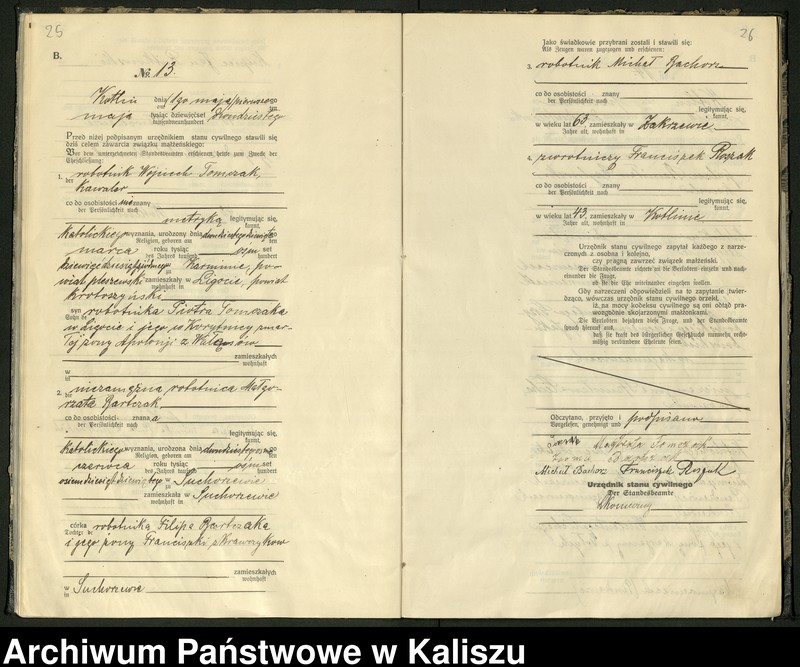 25
B.
№ 13.
Kotlin dnia 1go maja/pierwszego
am ten
maja tysiąc dziewięćset dwudziestego
tausendneunhundert
Przed niżej podpisanym urzędnikiem stanu cywilnego stawili się
dziś celem zawarcia związku małżeńskiego:
Vor dem unterzeichneten Standesbeamten erschienen heute zum Zweck der
Eheschließung:
1. robotnik Wojciech Tomczak,
der
kawaler
co do osobistości znany
der Persönlichkeit nach
metryką legitymując się,
kannt,
katolickiego wyznania, urodzony dnia
Religion, geboren am ten
marca roku tysiąc ośm set
des Jahres tausend hundert
w Karminie, po-
zu
wiat pleszewski zamieszkały w Ligocie, powiat
wohnhaft in
Krotoszyński
syn robotnika Piotra Tomczaka
Sohn de
w Ligocie i jego w Korytnicy zmar-
łej żony Apolonji z
zamieszkałych
wohnhaft
w
in
2. niezamężna robotnica Małgo-
die
rzata Bartczak
co do osobistości znana
der Persönlichkeit nach
legitymując się,
kannt,
katolickiego wyznania, urodzona dnia
Religion, geboren am ten
czerwca roku tysiąc ośm set
des Jahres tausend hundert
w Suchorzewie
zu
zamieszkała w Suchorzewie
wohnhaft in
córka robotnika Filipa Bartczaka
Tochter de
i jego żony Franciszki z Krawczyków
zamieszkałych
wohnhaft
w Suchorzewie
in
26
Jako świadkowie przybrani zostali i stawili się:
Als Zeugen waren zugezogen und erschienen:
3. robotnik Michał Bachorz
co do osobistości znany
der Persönlichkeit nach
legitymując się,
kannt,
w wieku lat 63, zamieszkały w Zakrzewie
Jahre alt, wohnhaft in
4. zwrotniczy Franciszek Roszak
co do osobistości znany
der Persönlichkeit nach
legitymując się,
kannt,
w wieku lat 43, zamieszkały w Kotlinie
Jahre alt, wohnhaft in
Urzędnik stanu cywilnego zapytał każdego z narze-
czonych z osobna i kolejno,
czy pragną zawrzeć związek małżeński.
Der Standesbeamte richtete an die Verlobten einzeln und nach-
einander die Frage,
ob sie die Ehe miteinander eingehen wollen.
Gdy narzeczeni odpowiedzieli na to zapytanie twier-
dząco, wówczas urzędnik stanu cywilnego orzekł,
iż, na mocy kodeksu cywilnego są oni odtąd pra-
wowgodnie skojarzonymi małżonkami.
Die Verlobten bejahten diese Frage, und der Standesbeamte
sprach hierauf aus,
daß sie kraft des bürgerlichen Gesetzbuchs nunmehr recht-
mäßig verbundene Eheleute seien.
Odczytano, przyjęto i podpisano
Vorgelesen, genehmigt und
Tomczak
Michał Bachorz Franciszek Roszak
Urzędnik stanu cywilnego
Der Standesbeamte
Archiwum Państwowe w Kaliszu